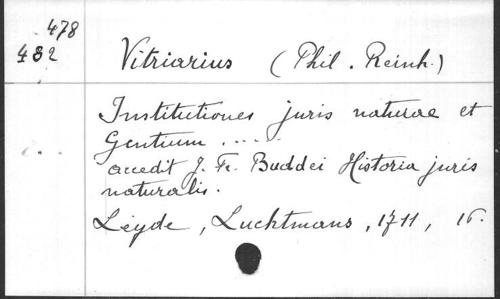 478
482
Vitriarius (Phil. Reinh.)
Institutiones juris naturae et
Gentium .....
accedit J. Fr. Buddei Historia juris
naturalis.
Leyde, Luchtmans, 1711, 16.